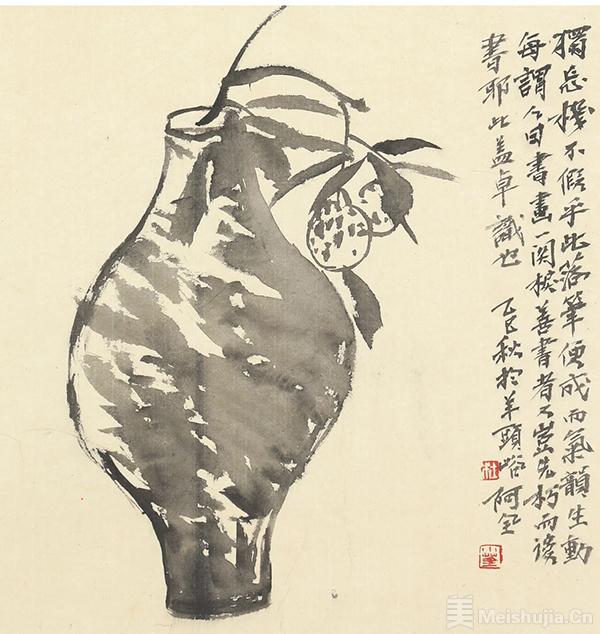 獨忘機不假乎此落筆便成而氣韻生動
每謂今日書畫一闋椗善書者不豈先朽而後
書耶此蓋卓識也
乙巳秋於羊頭峪阿全
杜
美 Meishujia.Cn